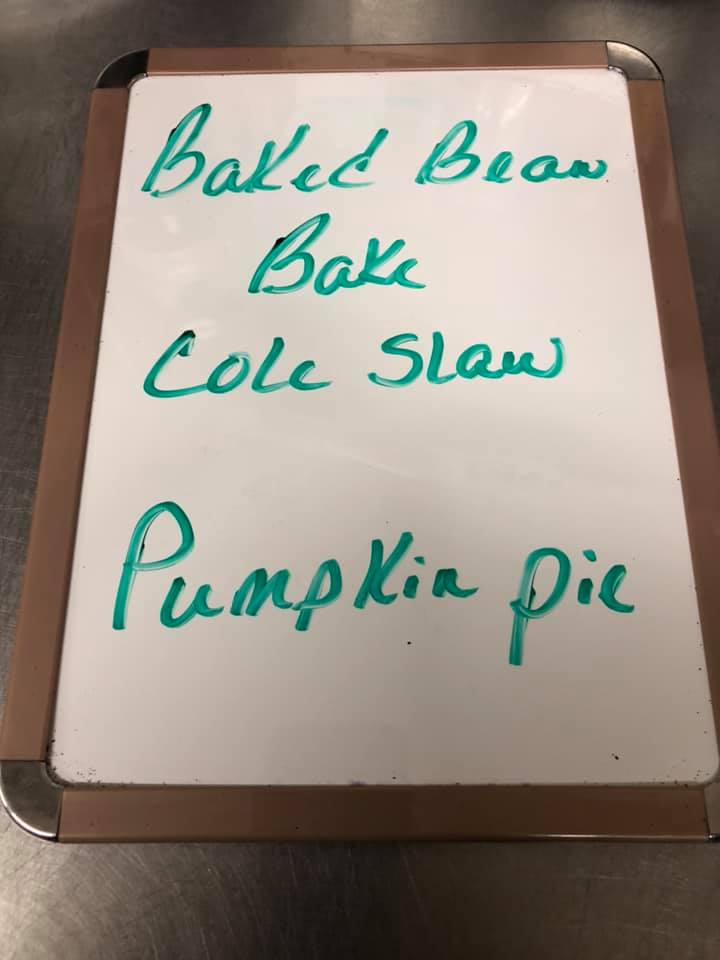 Baked Bean
Bake
Cole Slaw
Pumpkin pie